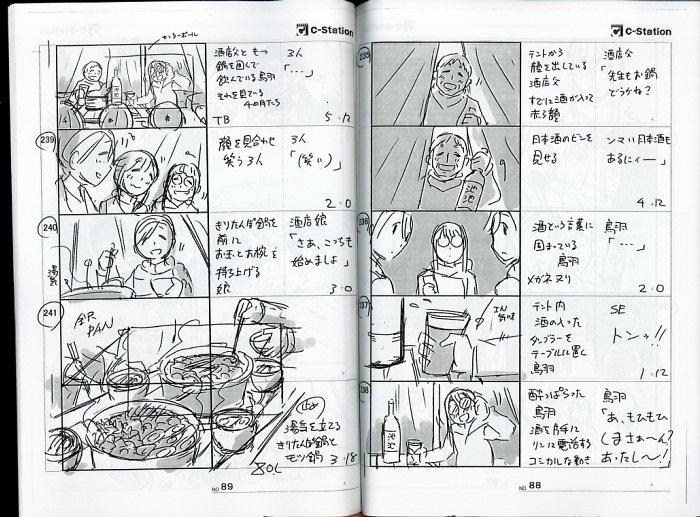 C-Station
テントから
顔を出している
酒店父
すでに酒が入って
赤ら顔
酒店父
「先生もお鍋
どうかね?
日本酒のビンを
見せる
ンマい日本酒も
あるにィー」
4+12
236
酒という言葉に
固まっている
鳥羽
メガネヌリ
鳥羽
「…」
2+0
テント内
酒の入った
タンブラーを
テーブルに置く
鳥羽
SE
トンッ!!
1+12
酔っぱらった
鳥羽
酒を片手に
リンに電話する
コミカルな動き
鳥羽
「あ、もひもひ
しまさぁ〜ん?
あたし〜!
NO 88
C-Station
センターポール
酒店父と もつ
鍋を囲んで
飲んでいる鳥羽
それを見ている
TB
3人
「…」
5+12
239
顔を見合わせ
笑う3人
3人
「(笑い)」
2+0
240
湯気
きりたんぽ鍋を
前に
お玉とお椀を
持ち上げる
娘
酒店娘
「さあ、こっちも
始めましょ」
3+0
241
PAN
湯気立てる
きりたんぽ鍋と
モツ鍋
3+18
NO 89